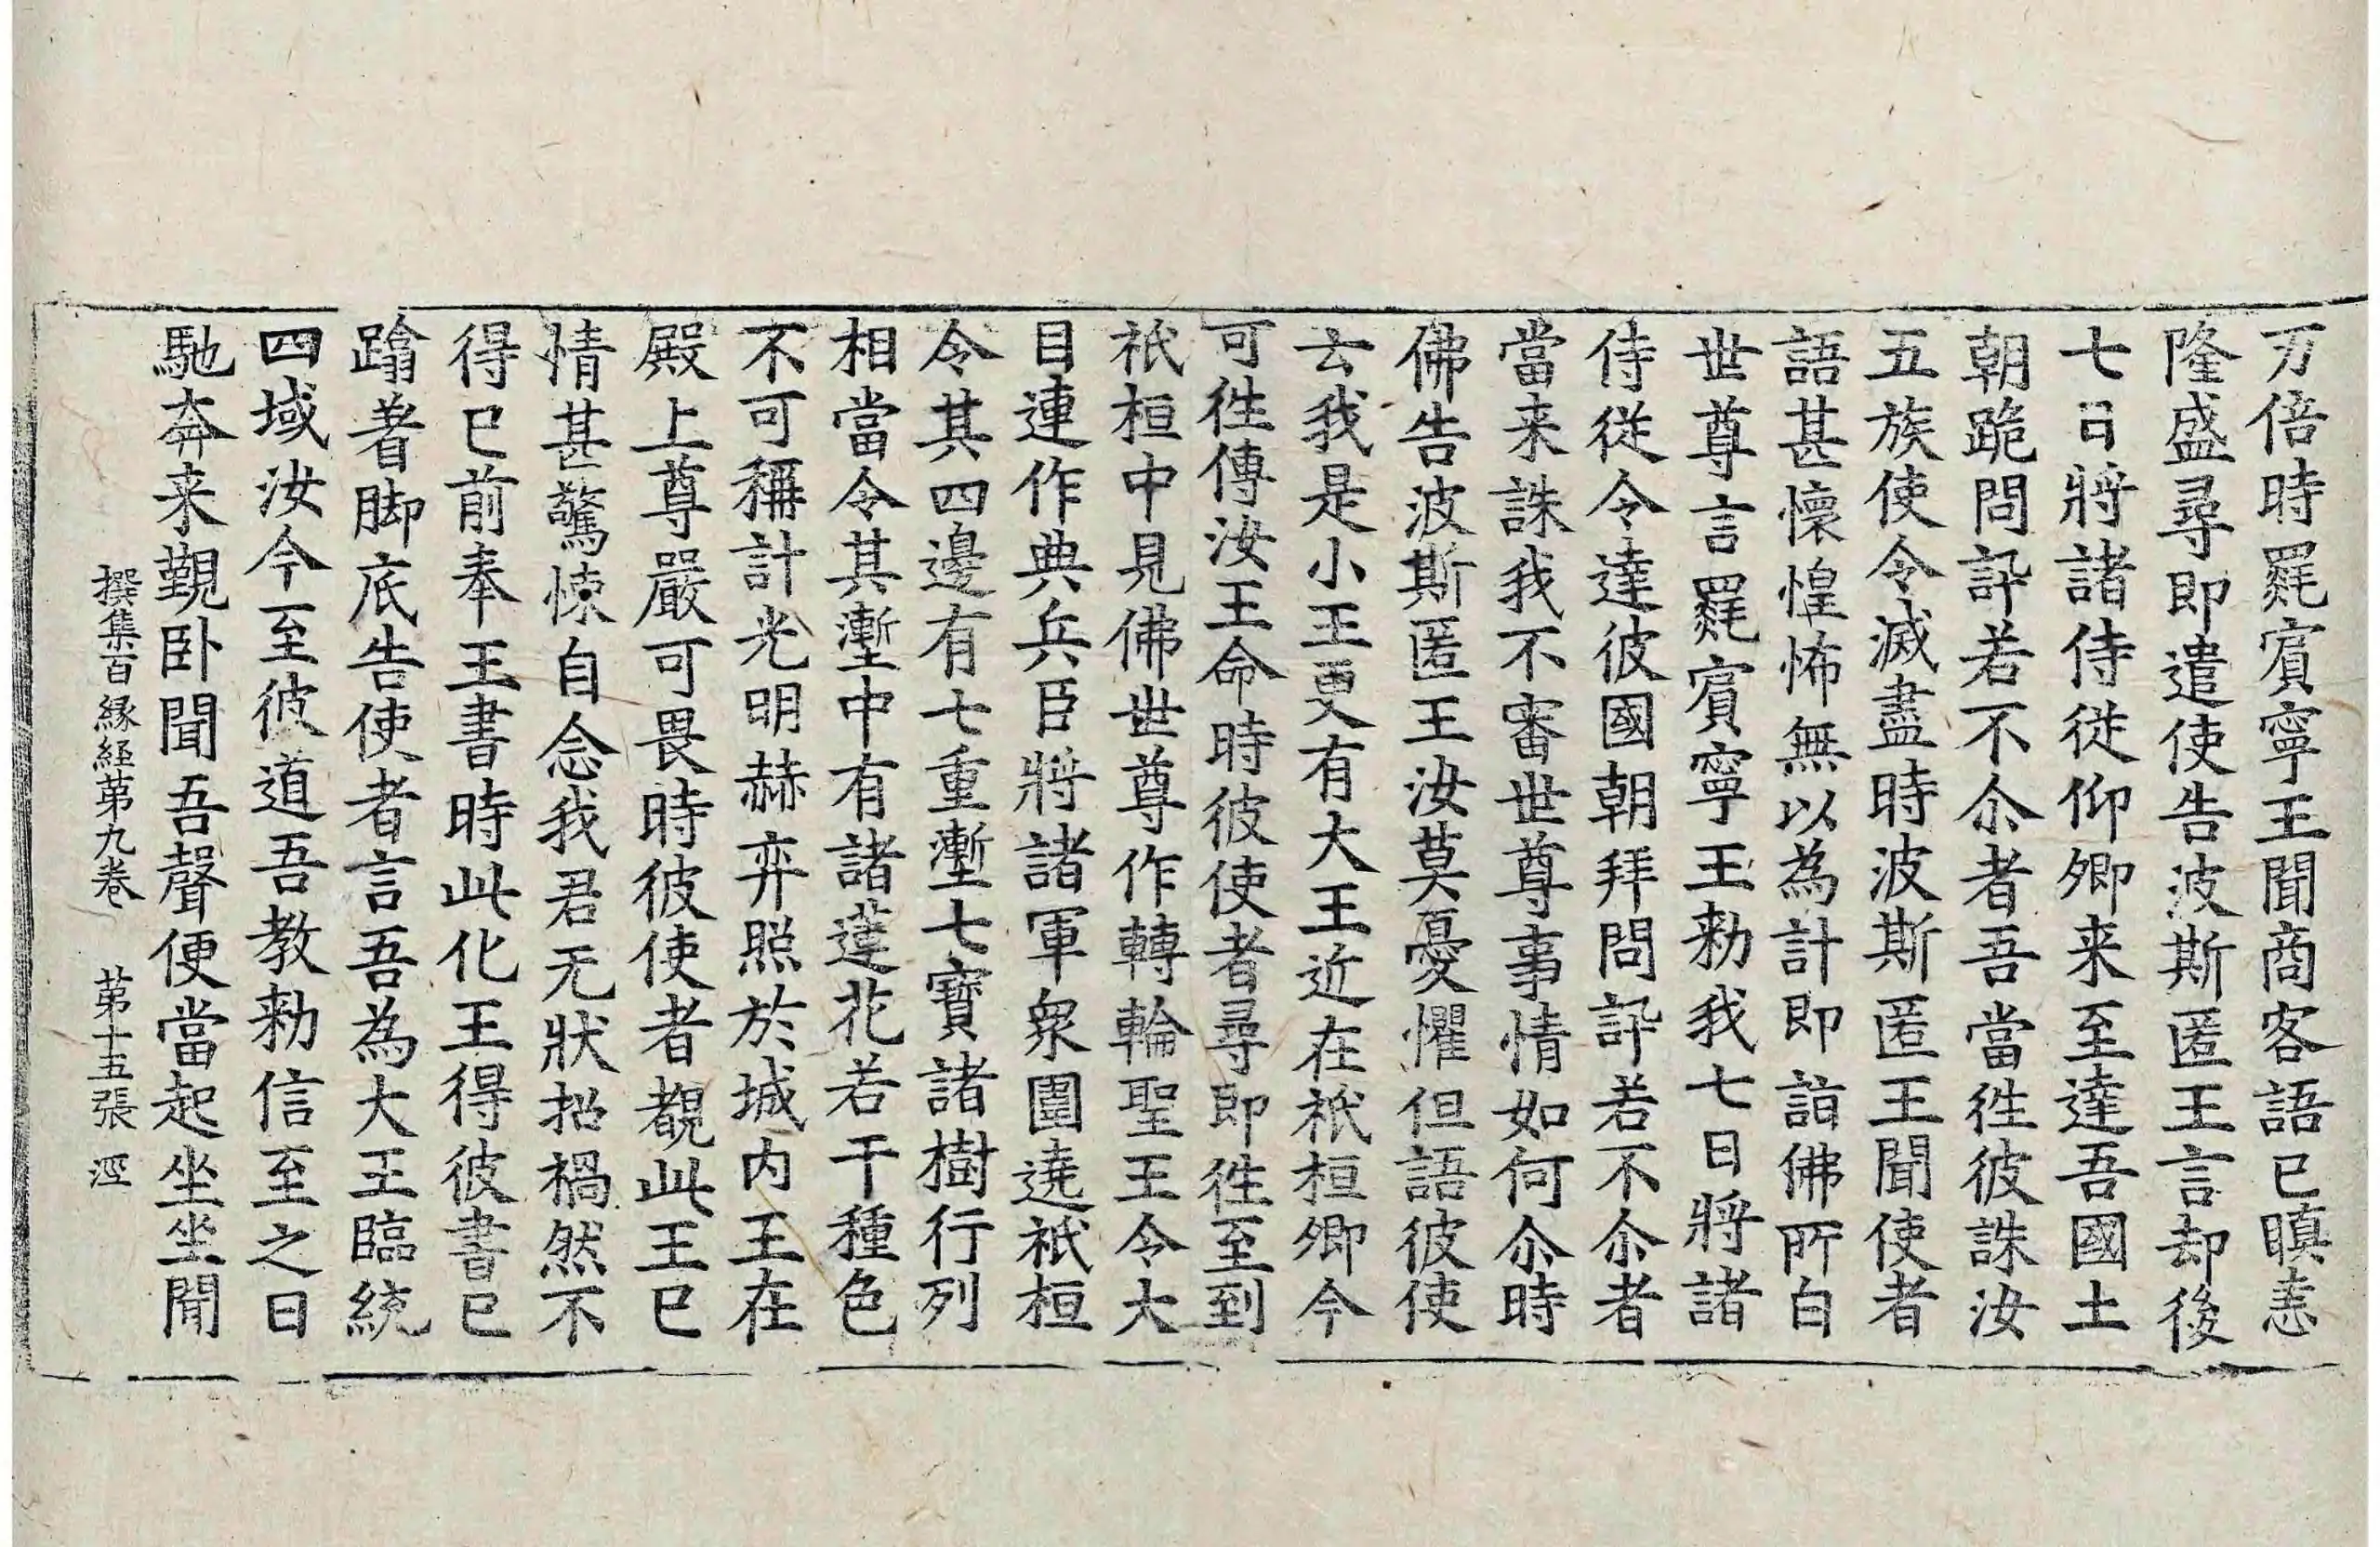 万倍時罽賓寧王聞商客語已瞋恚
隆盛尋即遣使告波斯匿王言却後
七日將諸侍從仰卿来至達吾國土
朝跪問訊若不尒者吾當徃彼誅汝
五族使令滅盡時波斯匿王聞使者
語甚懷惶怖無以為計即詣佛所白
世尊言罽賓寧王勑我七日將諸
侍從令達彼國朝拜問訊若不尒者
當来誅我不審世尊事情如何尒時
佛告波斯匿王汝莫憂懼但語彼使
云我是小王更有大王近在祇桓卿今
可徃傳汝王命時彼使者尋即徃至到
祇桓中見佛世尊作轉輪聖王令大
目連作典兵臣將諸軍衆圍遶祇桓
令其四邊有七重壍七寶諸樹行列
相當令其壍中有諸蓮花若干種色
不可稱計光明赫弈照於城内王在
殿上尊嚴可畏時彼使者覩此王已
情甚驚悚自念我君无狀招禍然不
得已前奉王書時此化王得彼書已
蹹著脚底告使者言吾為大王臨統
四域汝今至彼道吾教勑信至之日
馳奔来覲卧聞吾聲便當起坐坐聞
撰集百緣經苐九卷 苐十五張 涇